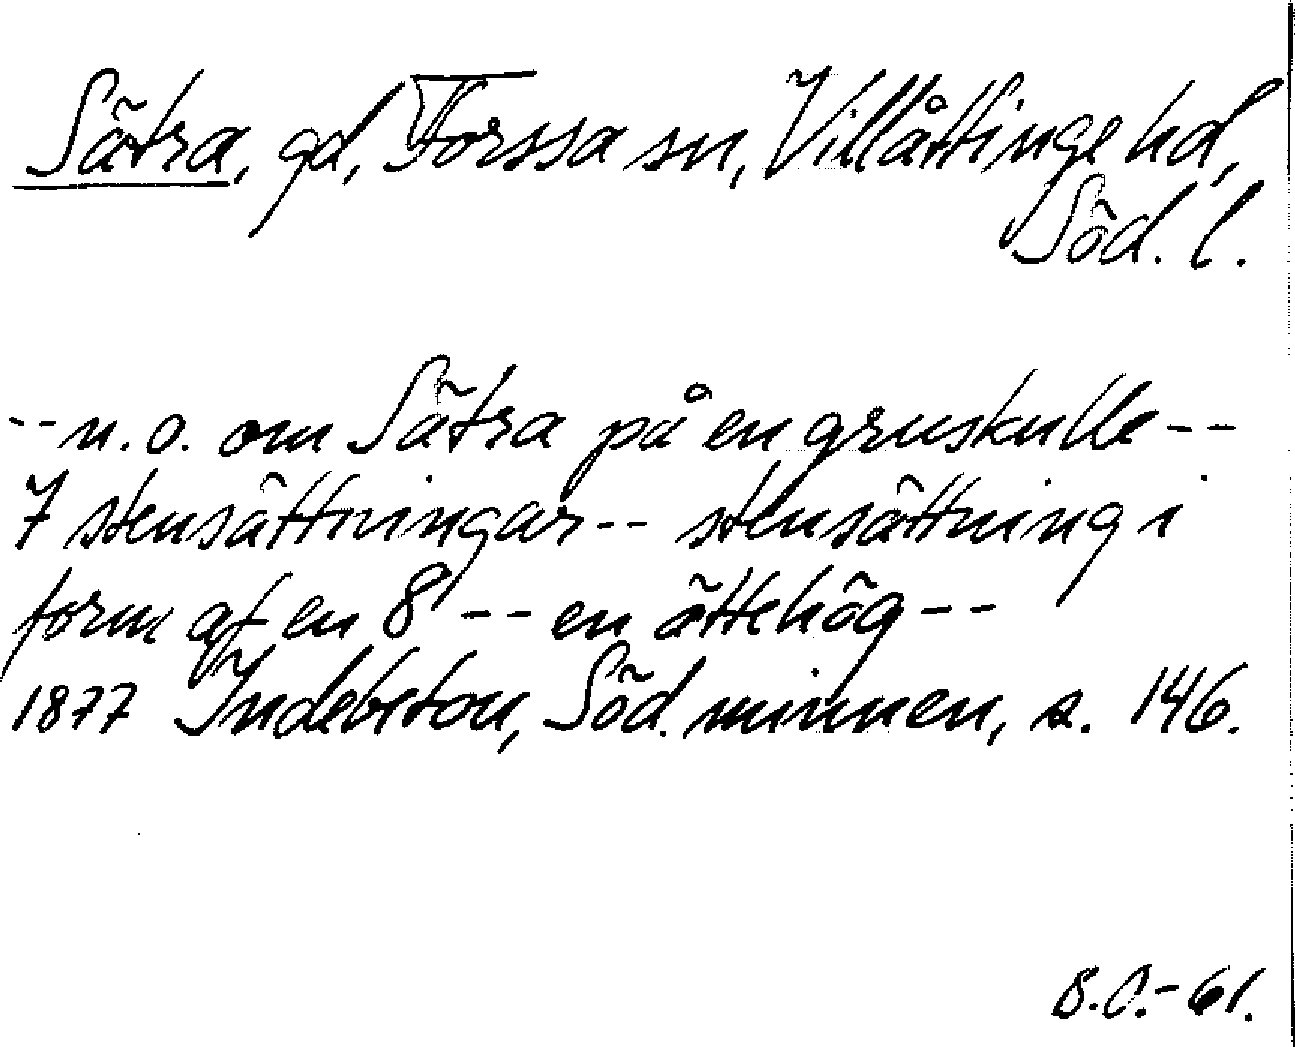 Sätra, gd, Forssa sn, Villåttinge hd,
Söd. l.
-- n.o. om Sätra på en gruskulle --
7 stensättningar -- stensättning i
form af en 8 -- en ättehög --
1877 Indebetou, Söd. minnen, s. 146.
B.O.-61.